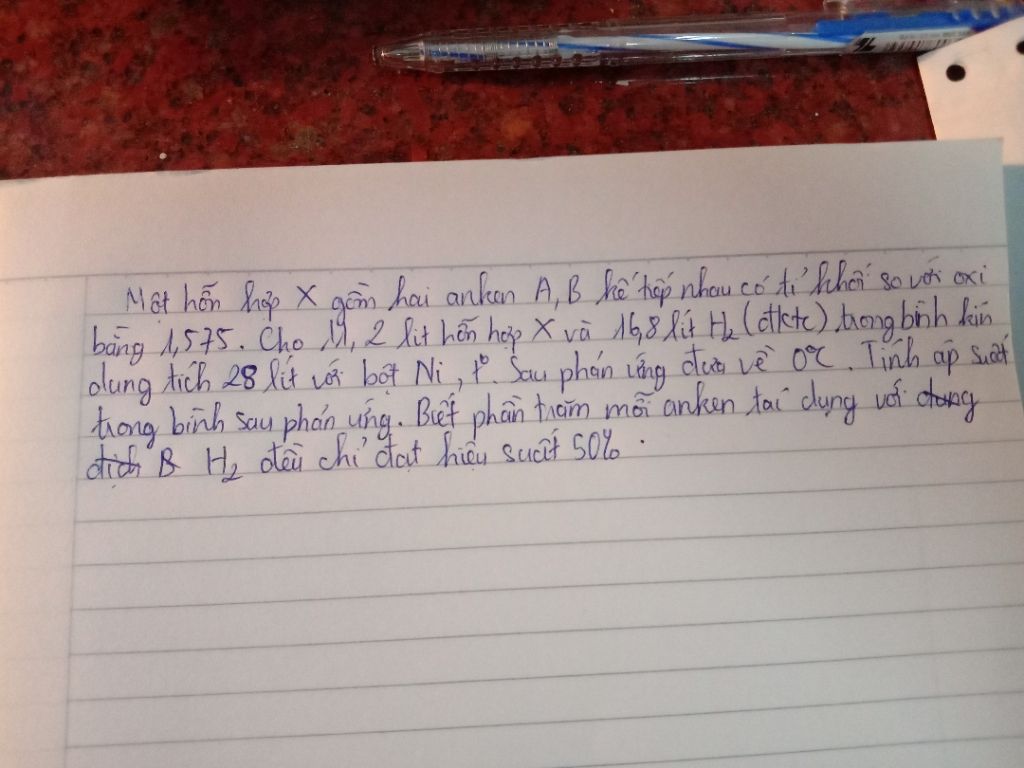 Một hỗn hợp X gồm hai anken A, B kế tiếp nhau có tỉ khối so với oxi
bằng 1,575. Cho 11, 2 lit hỗn hợp X và 16,8 lít H₂ (đktc) trong bình kín
dung tích 28 lít với bột Ni, t°. Sau phản ứng đưa về 0°C. Tính áp suất
trong bình sau phản ứng. Biết phần trăm mỗi anken tác dụng với
H₂ đều chỉ đạt hiệu suất 50%.